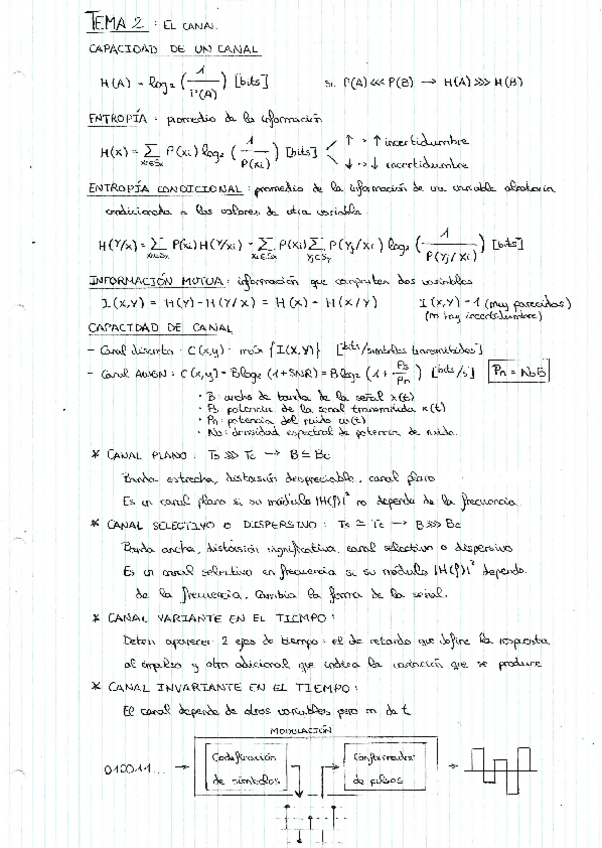 TEMA 2 : EL CANAL
CAPACIDAD DE UN CANAL
H(A) = log₂ (1/P(A)) [bits] Si P(A) <<< P(B) → H(A) >>> H(B)
ENTROPÍA : promedio de la información
H(X) = Σ xi∈Sx P(xi) log₂ (1/P(xi)) [bits] ↑ → ↑ incertidumbre
↓ → ↓ incertidumbre
ENTROPÍA CONDICIONAL : promedio de la información de una variable aleatoria
condicionada a los valores de otra variable
H(Y/X) = Σ xi∈Sx P(xi) H(Y/xi) = Σ xi∈Sx P(xi) Σ yj∈Sy P(yj/xi) log₂ (1/P(yj/xi)) [bits]
INFORMACIÓN MUTUA : información que comparten dos variables
I(X,Y) = H(Y) - H(Y/X) = H(X) - H(X/Y) I(X,Y) = 1 (muy parecidas)
(no hay incertidumbre)
CAPACIDAD DE CANAL
- Canal discreto : C(x,y) = máx {I(X,Y)} [bits/símbolos transmitidos]
- Canal AWGN : C(x,y) = B log₂ (1 + SNR) = B log₂ (1 + Ps/Pn) [bits/s] Pn = N₀B
• B : ancho de banda de la señal x(t)
• Ps : potencia de la señal transmitida x(t)
• Pn : potencia del ruido w(t)
• N₀ : densidad espectral de potencia de ruido.
* CANAL PLANO : Ts >>> Tc → B ≤ Bc
Banda estrecha, distorsión despreciable, canal plano
Es un canal plano si su módulo |H(f)|² no depende de la frecuencia.
* CANAL SELECTIVO O DISPERSIVO : Ts ≅ Tc → B >>> Bc
Banda ancha, distorsión significativa, canal selectivo o dispersivo
Es un canal selectivo en frecuencia si su módulo |H(f)|² depende
de la frecuencia. Cambia la forma de la señal.
* CANAL VARIANTE EN EL TIEMPO :
Deben aparecer 2 ejes de tiempo : el de retardo que define la respuesta
al impulso y otro adicional que indica la variación que se produce
* CANAL INVARIANTE EN EL TIEMPO :
El canal depende de otras variables pero no de t
MODULACIÓN
010011... → Codificación Conformador
de símbolos de pulsos